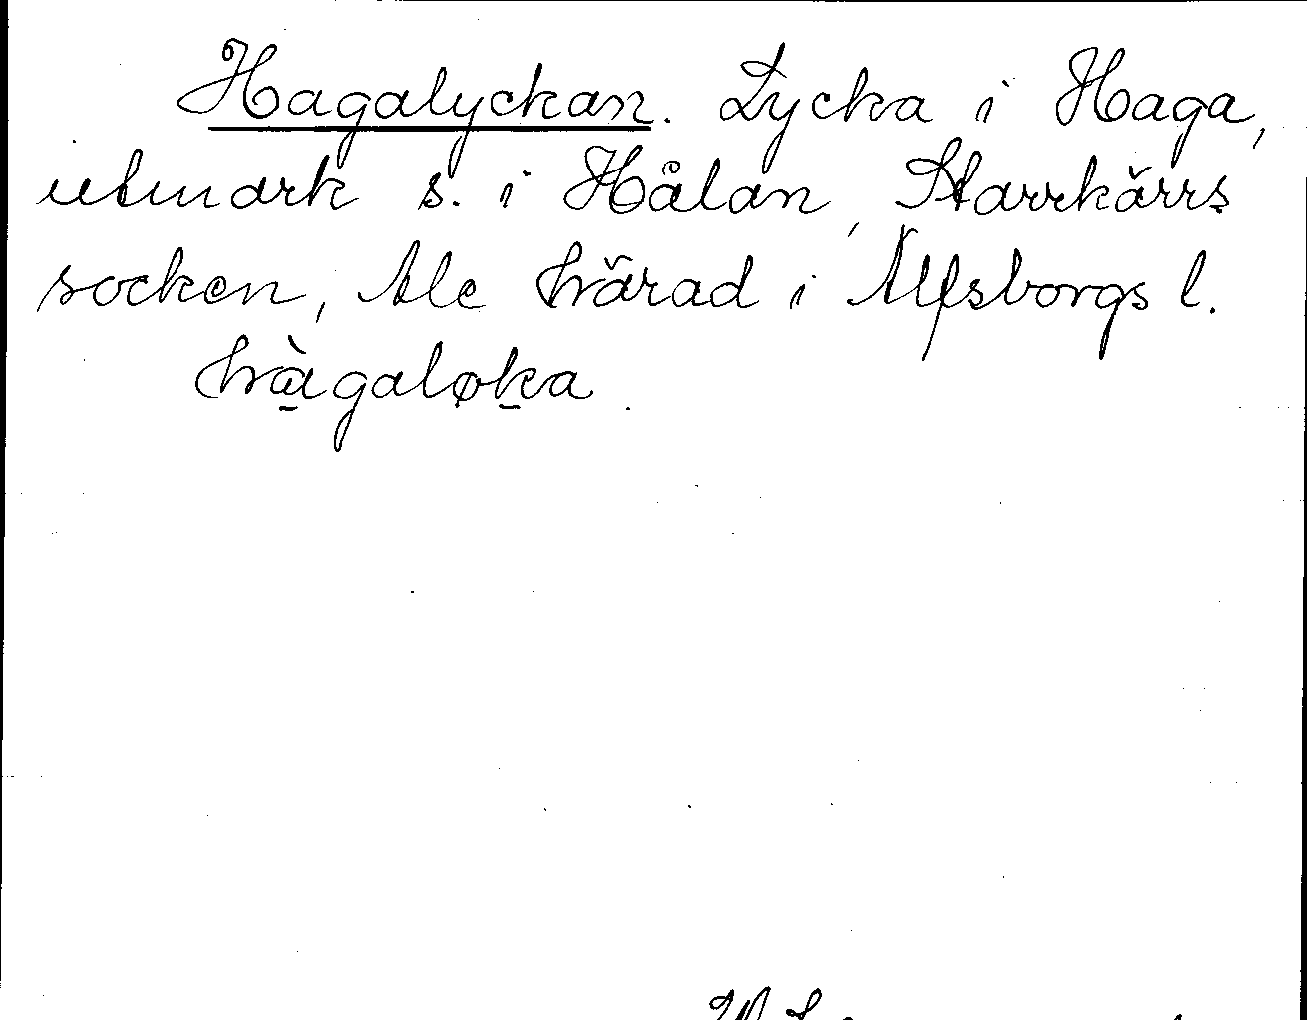 Hagalyckan. Lycka i Haga,
utmark s. i Hålan, Starrkärrs
socken, Ale härad i Älfsborgs l.
hàgaløka.